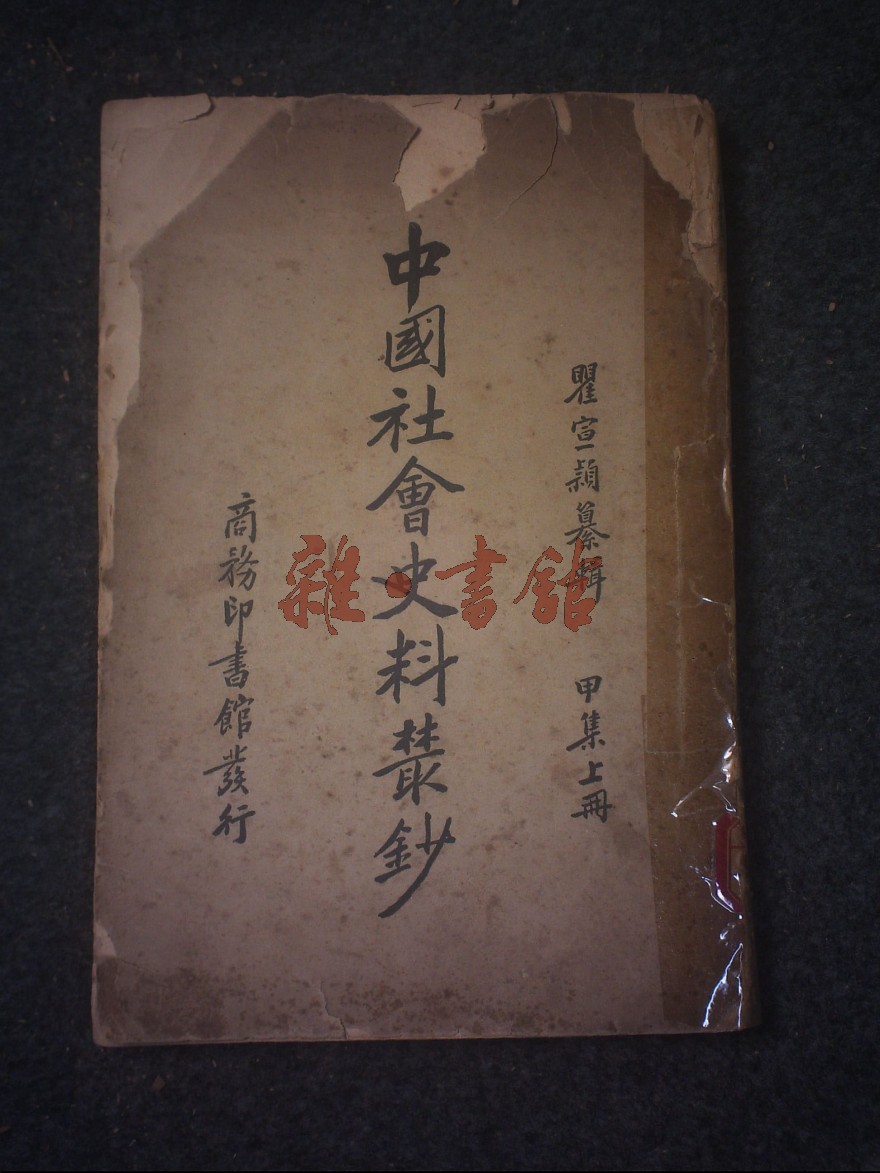 瞿宣穎纂輯 甲集上冊
中國社會史料叢鈔
商務印書館發行
雜·書館